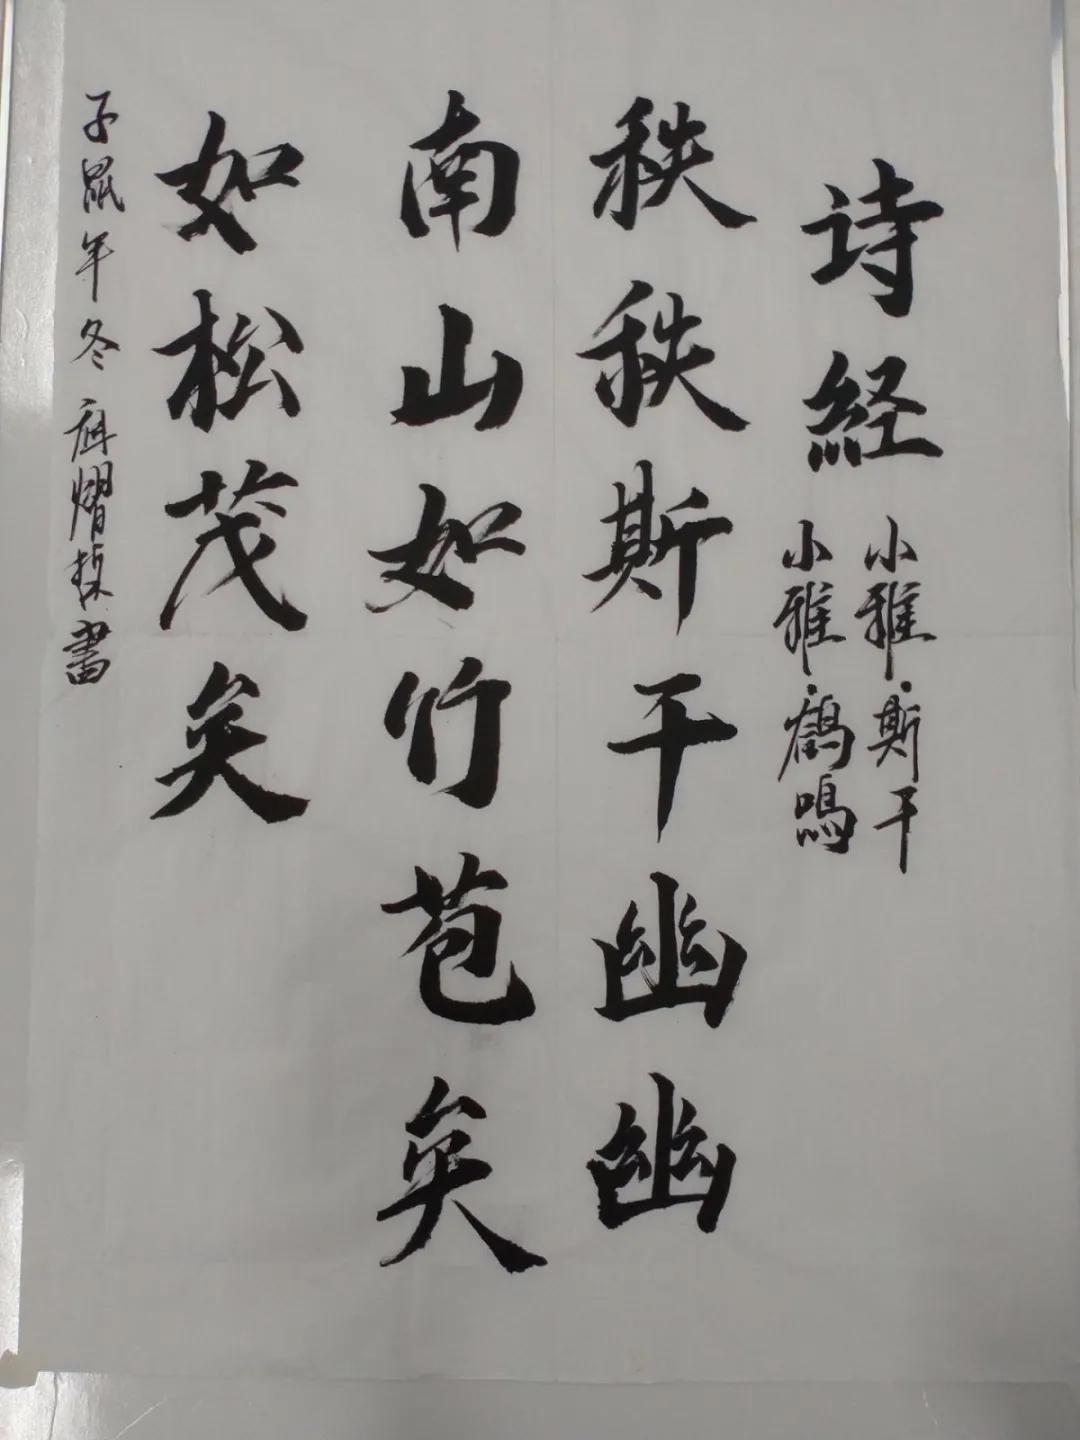 诗経
小雅·斯干
小雅·鶴鸣
秩秩斯干幽幽
南山如竹苞矣
如松茂矣
子鼠年冬 書